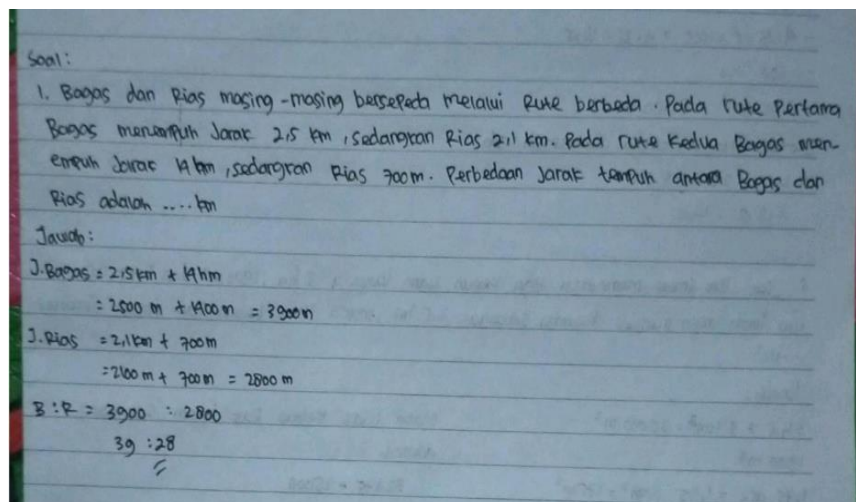 Soal:
1. Bagas dan Rias masing-masing bersepeda melalui Rute berbeda. Pada rute Pertama
Bagas menempuh Jarak 2,5 km, sedangkan Rias 2,1 km. Pada rute Kedua Bagas men-
empuh Jarak 14 hm, sedangkan Rias 700m. Perbedaan Jarak tempuh antara Bagas dan
Rias adalah .... km
Jawab:
J. Bagas = 2,5 km + 14hm
= 2500 m + 1400 m = 3900m
J. Rias = 2,1 km + 700m
= 2100 m + 700m = 2800 m
B : R = 3900 : 2800
39 : 28